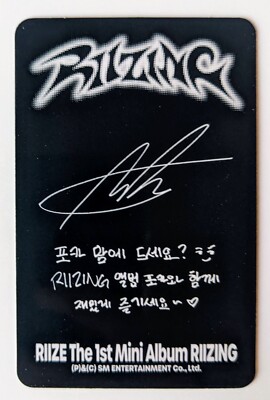 RIIZING
포카 맘에 드세요?
RIIZING 앨범 포카와 함께
재밌게 즐기세요~ ♡
RIIZE The 1st Mini Album RIIZING
(P)&(C) SM ENTERTAINMENT Co., Ltd.